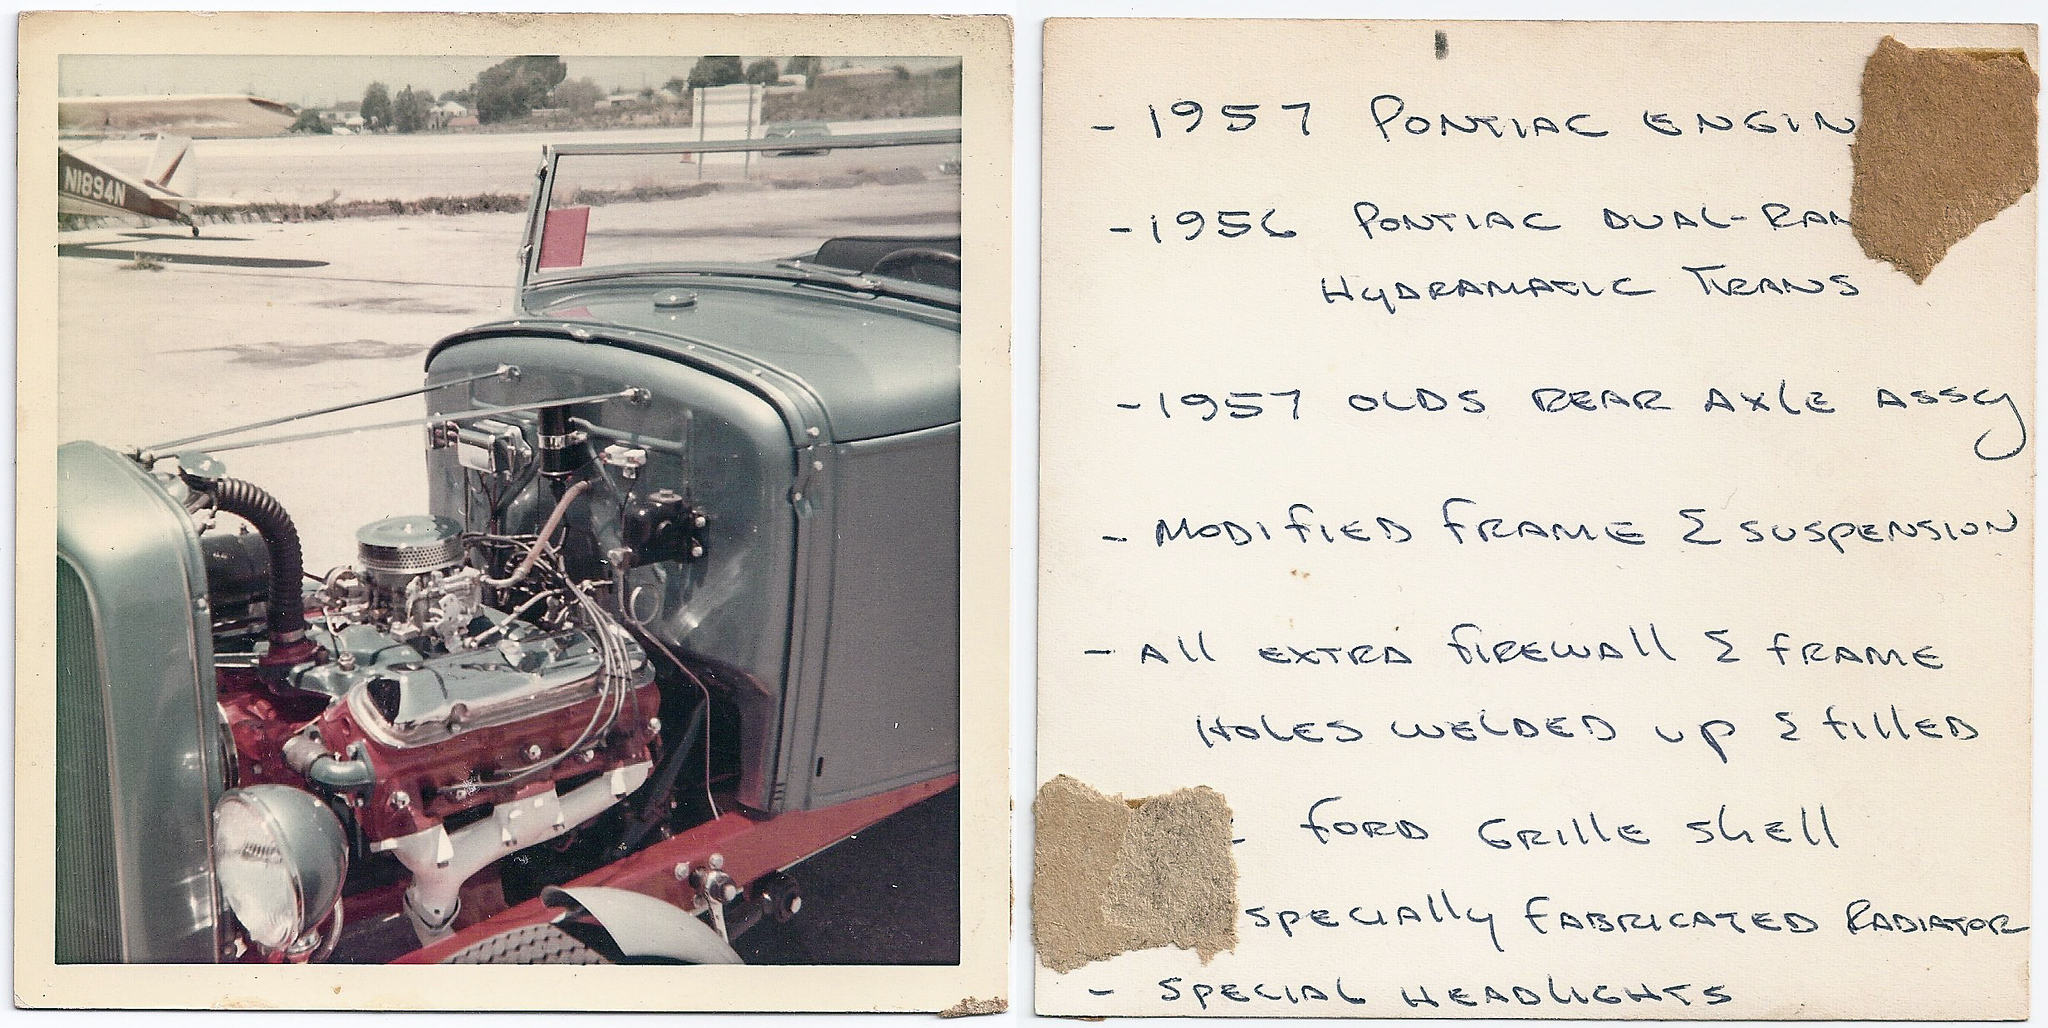 N1894N
- 1957 PONTIAC ENGIN
- 1956 PONTIAC DUAL-RAN
HYDRAMATIC TRANS
- 1957 OLDS REAR AXLE ASSY
- MODIFIED FRAME & SUSPENSION
- ALL EXTRA FIREWALL & FRAME
HOLES WELDED UP & FILLED
- FORD GRILLE SHELL
SPECIALLY FABRICATED RADIATOR
- SPECIAL HEADLIGHTS